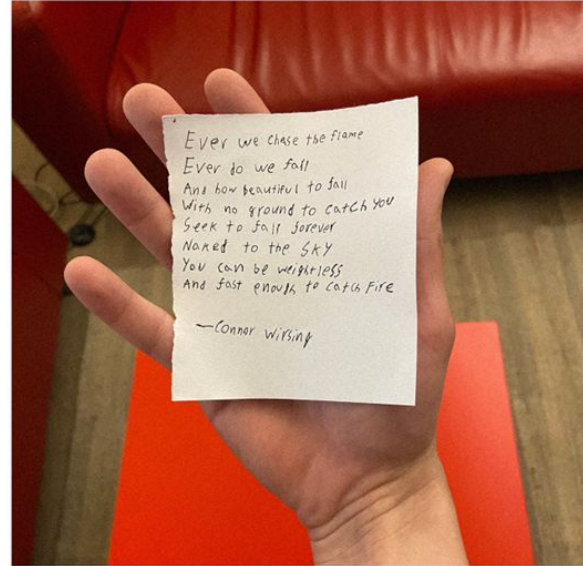 Ever we chase the flame
Ever do we fall
And how beautiful to fall
With no ground to catch you
Seek to fall forever
Naked to the sky
You can be weightless
And fast enough to catch fire
—Connor Wirsing